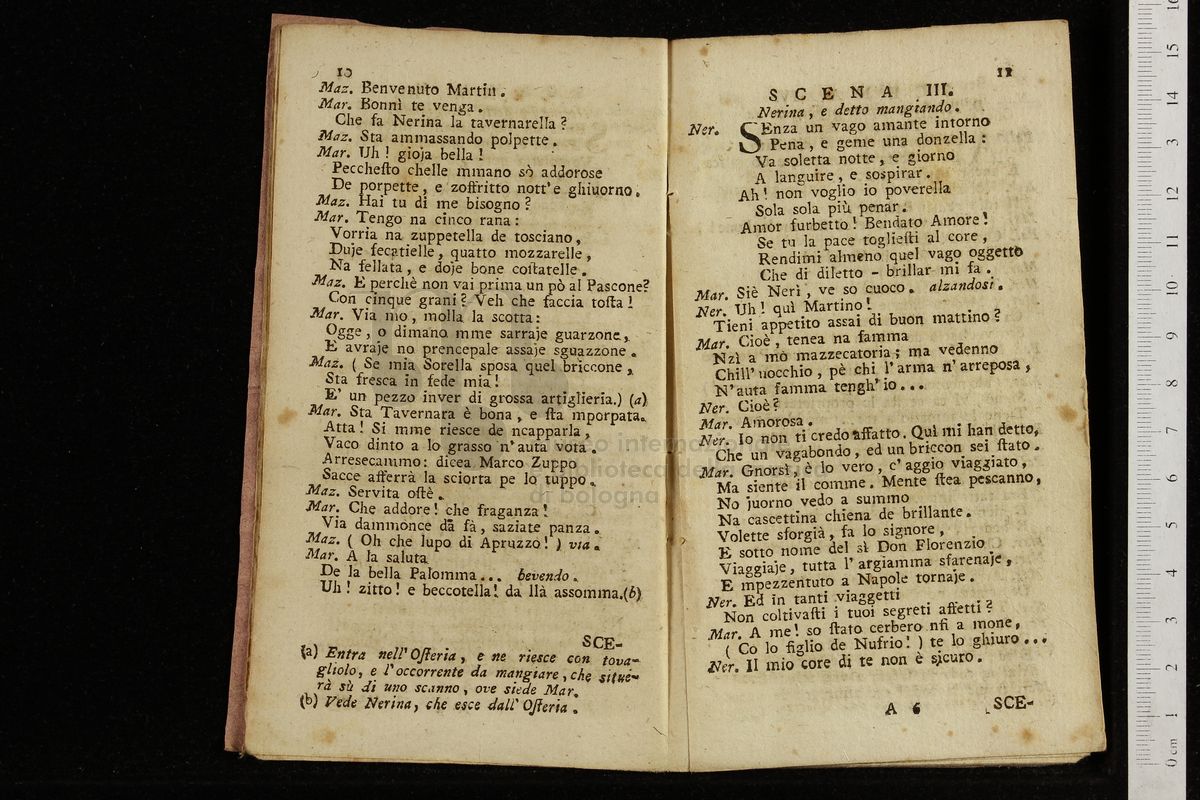 10
Maz. Benvenuto Martin.
Mar. Bonnì te venga.
Che fa Nerina la tavernarella?
Maz. Sta ammassando polpette.
Mar. Uh! gioja bella!
Pecchesto chelle mmano sò addorose
De porpette, e zoffritto nott'e ghiuorno.
Maz. Hai tu di me bisogno?
Mar. Tengo na cinco rana:
Vorria na zuppetella de tosciano,
Duje fecatielle, quatto mozzarelle,
Na fellata, e doje bone costatelle.
Maz. E perchè non vai prima un pò al Pascone?
Con cinque grani? Veh che faccia tosta!
Mar. Via mo, molla la scotta:
Ogge, o dimano mme sarraje guarzone,
E avraje no prencepale assaje sguazzone.
Maz. (Se mia Sorella sposa quel briccone,
Sta fresca in fede mia!
E' un pezzo inver di grossa artiglieria.) (a)
Mar. Sta Tavernara è bona, e sta mporpata.
Atta! Si mme riesce de ncapparla,
Vaco dinto a lo grasso n'auta vota.
Arresecammo: dicea Marco Zuppo
Sacce afferrà la sciorta pe lo tuppo.
Maz. Servita ostè.
Mar. Che addore! che fraganza!
Via dammonce da fà, saziate panza.
Maz. (Oh che lupo di Apruzzo!) via.
Mar. A la saluta
De la bella Palomma... bevendo.
Uh! zitto! e beccotella! da llà assomma.(b)
SCE-
(a) Entra nell'Osteria, e ne riesce con tova-
gliolo, e l'occorrente da mangiare, che situe-
rà sù di uno scanno, ove siede Mar.
(b) Vede Nerina, che esce dall'Osteria.
11
SCENA III.
Nerina, e detto mangiando.
Ner. SEnza un vago amante intorno
Pena, e geme una donzella:
Va soletta notte, e giorno
A languire, e sospirar.
Ah! non voglio io poverella
Sola sola più penar.
Amor furbetto! Bendato Amore!
Se tu la pace togliesti al core,
Rendimi almeno quel vago oggetto
Che di diletto - brillar mi fa.
Mar. Siè Nerì, ve so cuoco. alzandosi.
Ner. Uh! quì Martino!
Tieni appetito assai di buon mattino?
Mar. Cioè, tenea na famma
Nzì a mò mazzecatoria; ma vedenno
Chill'uocchio, pè chi l'arma n'arreposa,
N'auta famma tengh'io...
Ner. Cioè?
Mar. Amorosa.
Ner. Io non ti credo affatto. Quì mi han detto,
Che un vagabondo, ed un briccon sei stato.
Mar. Gnorsì, è lo vero, c'aggio viaggiato,
Ma siente il comme. Mente stea pescanno,
No juorno vedo a summo
Na cascettina chiena de brillante.
Volette sforgià, fa lo signore,
E sotto nome del sì Don Florenzio
Viaggiaje, tutta l'argiamma sfarenaje,
E mpezzentuto a Napole tornaje.
Ner. Ed in tanti viaggetti
Non coltivasti i tuoi segreti affetti?
Mar. A me! so stato cerbero nfi a mone,
(Co lo figlio de Nufrio!) te lo ghiuro...
Ner. Il mio core di te non è sicuro.
A 6
SCE-